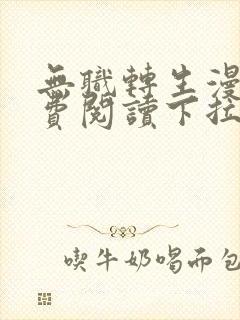 無職轉生漫
費閱讀下拉
喫牛奶喝面包